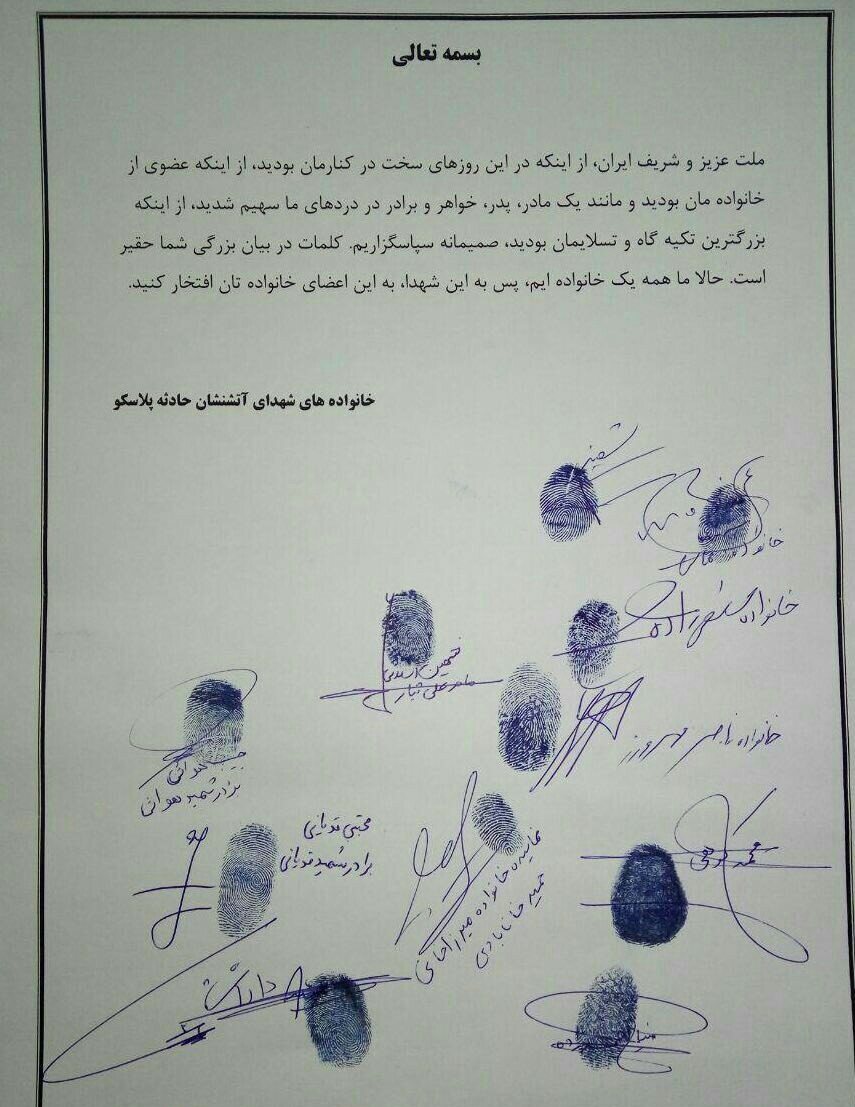 بسمه تعالی
ملت عزیز و شریف ایران، از اینکه در این روزهای سخت در کنارمان بودید، از اینکه عضوی از
خانواده مان بودید و مانند یک مادر، پدر، خواهر و برادر در دردهای ما سهیم شدید، از اینکه
بزرگترین تکیه گاه و تسلایمان بودید، صمیمانه سپاسگزاریم. کلمات در بیان بزرگی شما حقیر
است. حالا ما همه یک خانواده ایم، پس به این شهدا، به این اعضای خانواده تان افتخار کنید.
خانواده های شهدای آتشنشان حادثه پلاسکو
خانواده
خانواده
خانواده ناصر مهرورز
برادر شهید هوائی
مجتبی قدیانی
برادر شهید قدیانی
نماینده خانواده میرزاخانی
حمید خانابادی
محمد